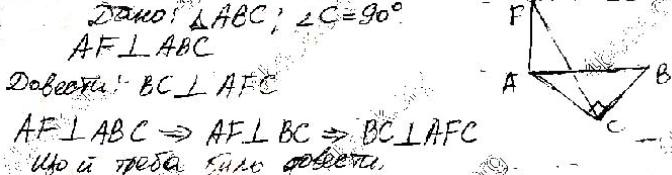 Дано: △ABC; ∠C=90°
AF⊥ABC
Довести: BC⊥AFC
AF⊥ABC ⇒ AF⊥BC ⇒ BC⊥AFC
що й треба було довести.
F
A
B
C